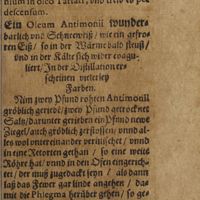 nium in oleo Tartari, und
descensum.
Ein Oleum Antimonii wunder-
barlich und Schneeweiß / wie ein gefror-
en Eiß / so in der Wärme bald fleust /
und in der Kälte sich wider coagu-
liert / In der Distillation er-
scheinen vielerley
Farben.
Nim zwey Pfund rohen Antimonii
gröblich gerieben / zwey Pfund getrocknet
Saltz / darunter gerieben ein Pfund newe
Ziegel / auch gröblich zerstossen / und al-
les wol untereinander vermischet / und
in eine Retorten gethan / so eine weite
Röhre hat / und in den Ofen eingerich-
tet / der muß zugedackt seyn / als dann
laß das Fewer gar linde angehen / das
mit die Phlegma herüber gehen / so ge-